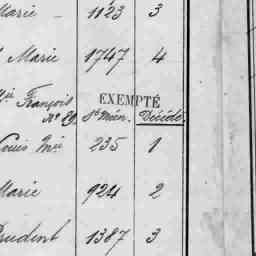 Marie - 1123 3
Marie 1747 4
Mie François EXEMPTÉ
No 29. Ste Méen. Décédé.
Louis Mie 235 1
Marie 924 2
Prudent 1387 3